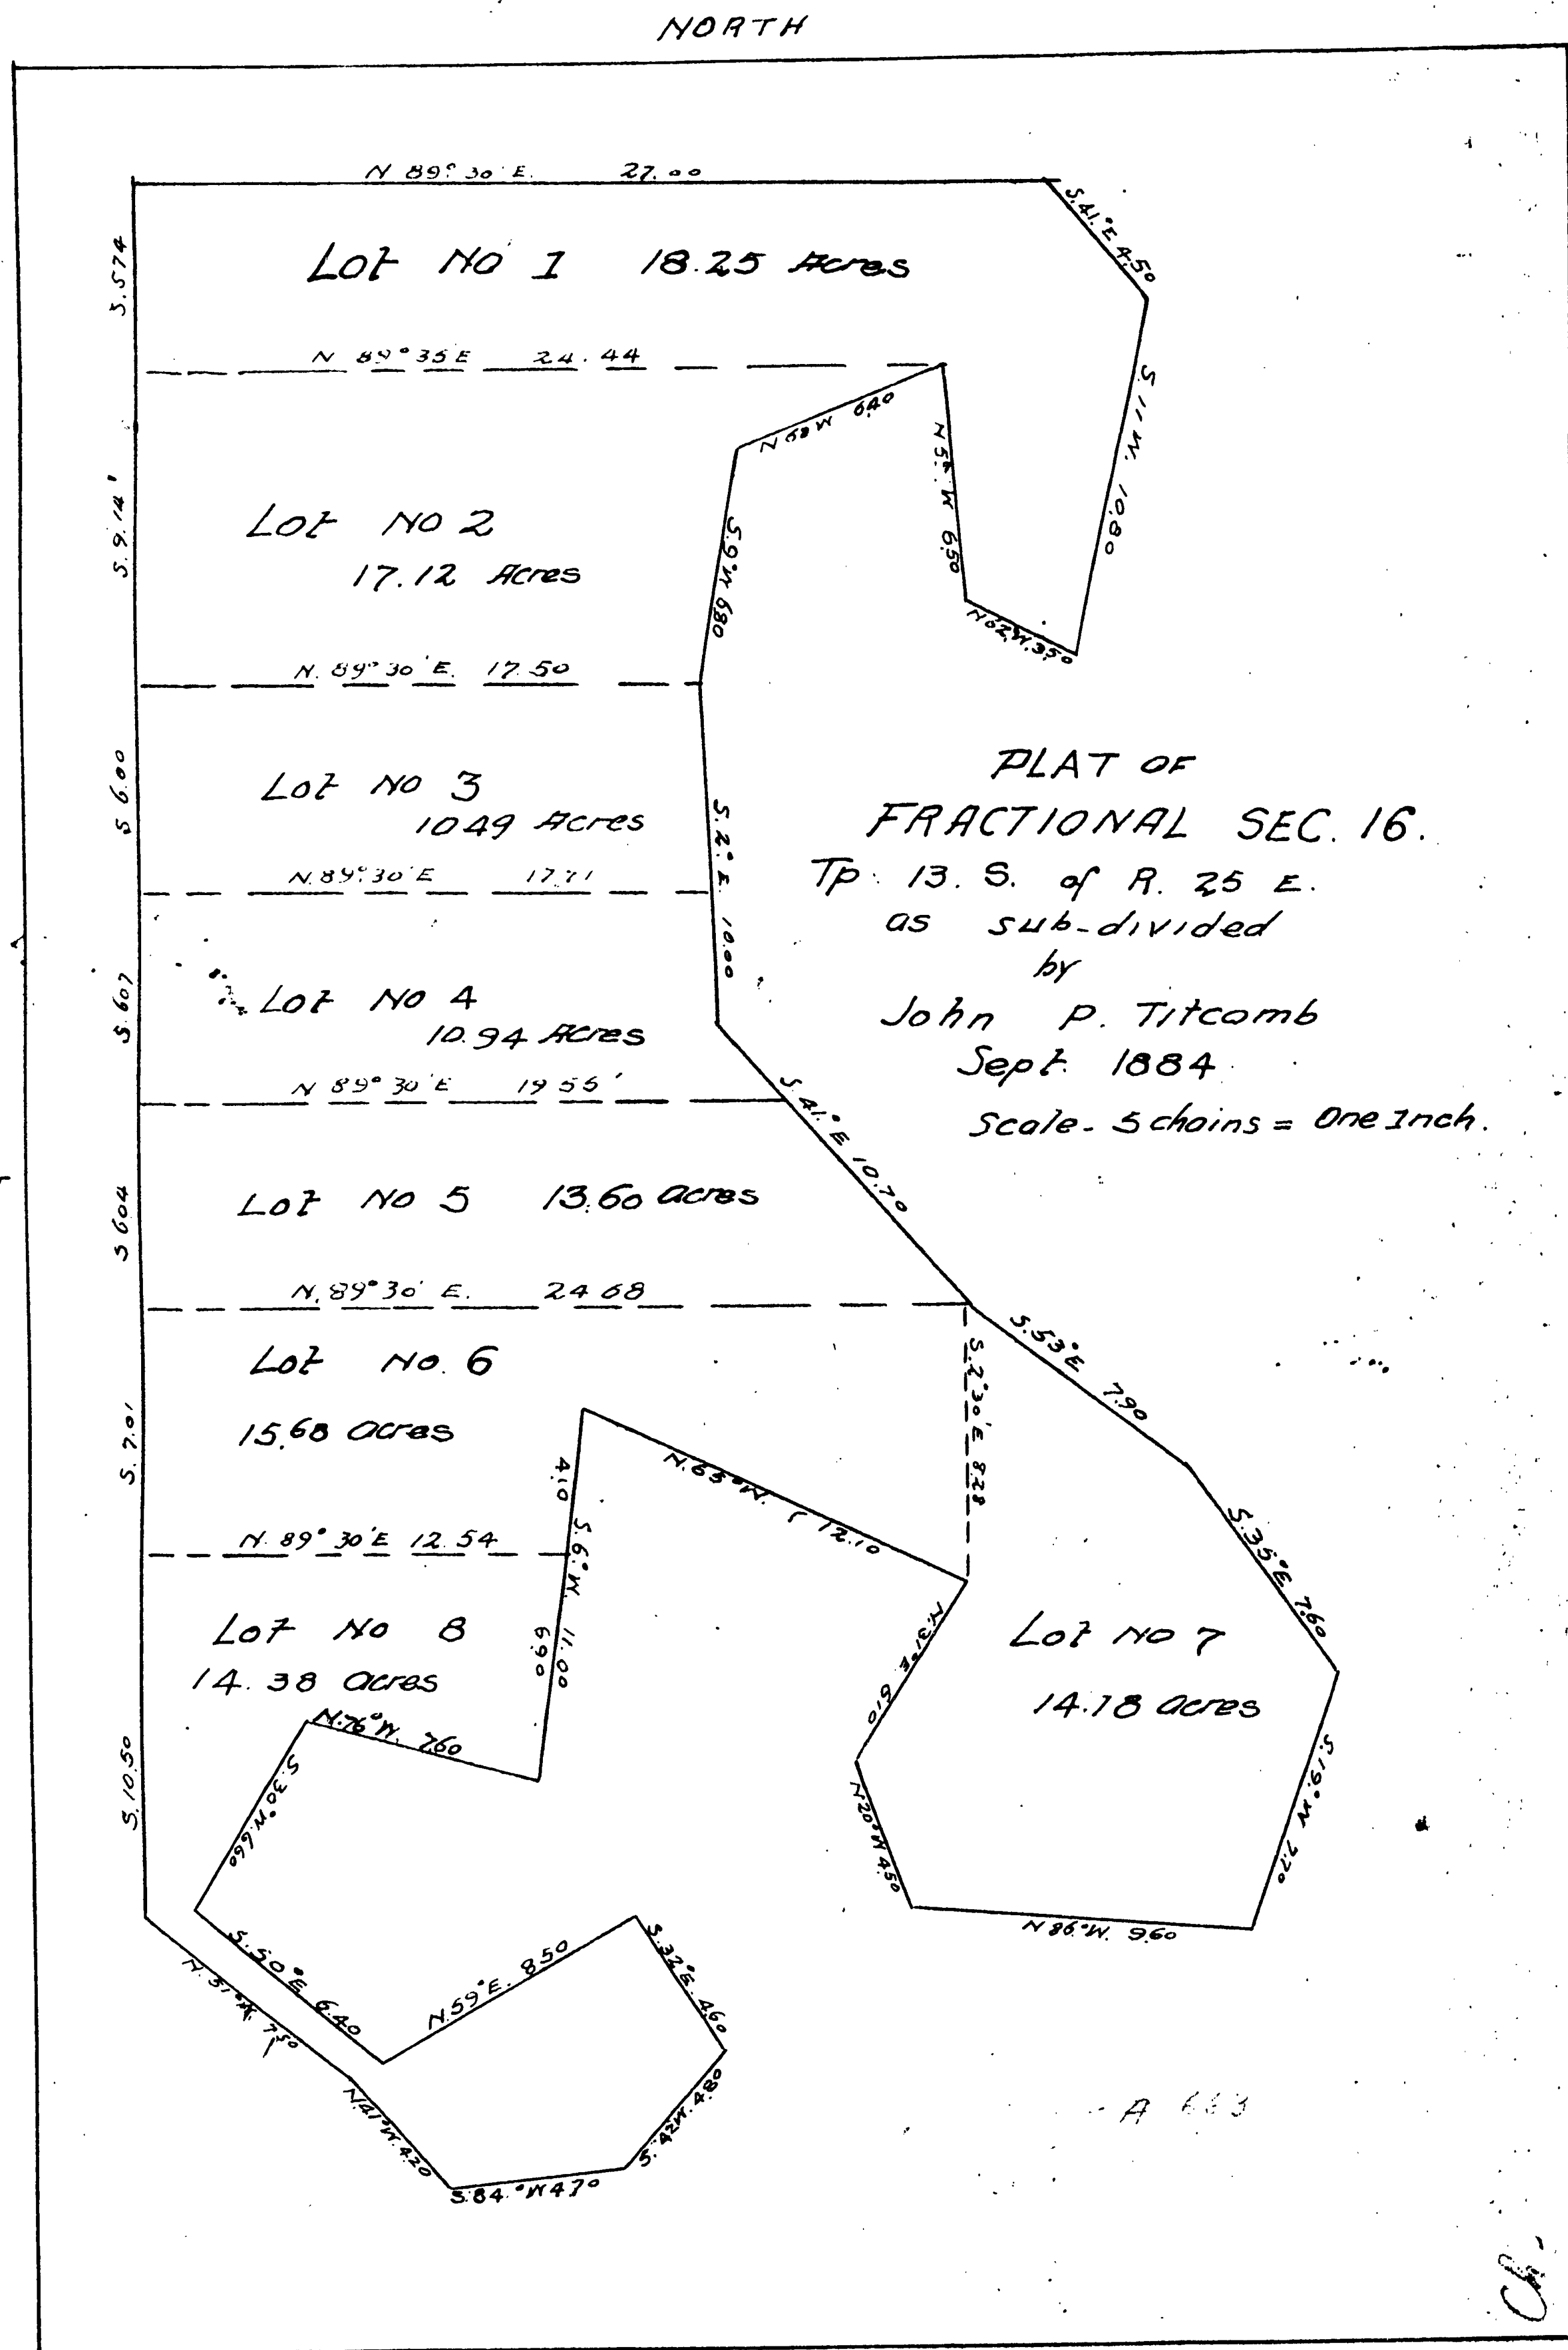 NORTH
N 89° 30' E. 27.00
S. 41.° E 4.50
S. 574
Lot No 1 18.25 Acres
N 89° 35 E 24.44
S. 11 W. 10.80
N 68 W 6.40
N 5° W 6.50
N 62° W. 3.50
S. 9. 14'
Lot No 2
17.12 Acres
S. 9° W 6.80
N. 89° 30' E. 17.50
S 6.00
Lot No 3
10.49 Acres
S. 2° E. 10.00
N. 89° 30' E 17.71
PLAT OF
FRACTIONAL SEC. 16.
Tp. 13. S. of R. 25 E.
as sub-divided
by
John P. Titcomb
Sept. 1884
Scale - 5 chains = One Inch.
S. 607
Lot No 4
10.94 Acres
N 89° 30' E 19 55'
S. 41.° E 10.70
S 604
Lot No 5 13.60 acres
N. 89° 30' E. 24 68
S. 53° E 7.90
S. 2° 30' E 8.28
Lot No. 6
15.68 acres
S. 7.01
4.10
N. 65° W. 12.10
S. 6° W. 11.00
6.90
N. 89° 30' E 12.54
S. 35° E 7.60
Lot No 8
14.38 acres
N. 31° E 6.10
Lot No 7
14.18 acres
S. 10.50
N. 76° W. 7.60
S. 30° W. 6.60
N 20° W 4.50
S. 19.° W 7.70
N 86° W. 9.60
S. 50° E 6.40
N. 51° W. 7.50
N. 59° E. 8.50
S. 32° E. 4.60
N. 41° W. 4.20
S. 42 W. 4.80
S. 84.° W 4.70
A
Ch.